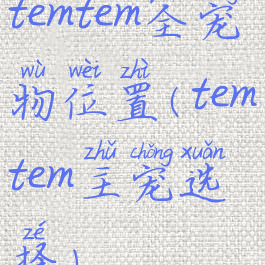 temtem全宠
wù wèi zhì
物位置(tem
zhǔ chǒng xuǎn
tem主宠选
zé
择)